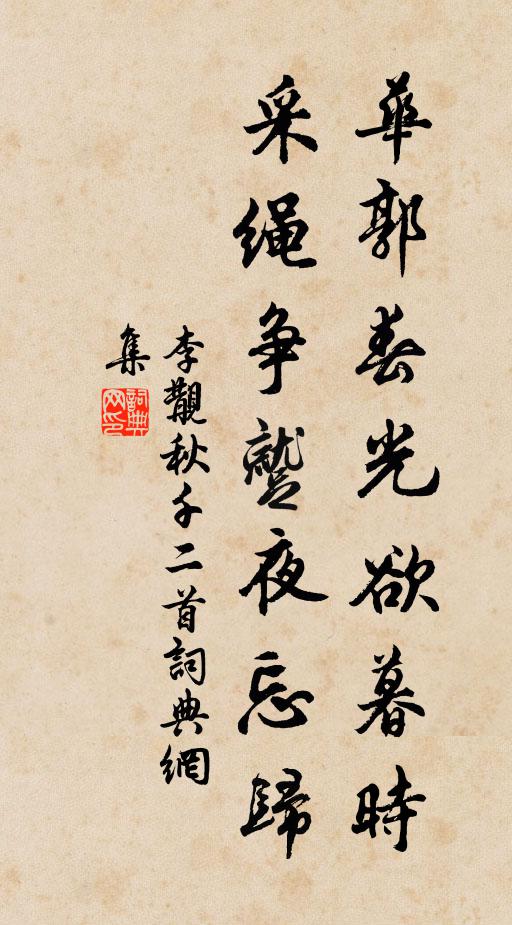 華郭春光欲暮時
采绳争蹵夜忘歸
李覯秋千二首詞典網
集
詞典
网印